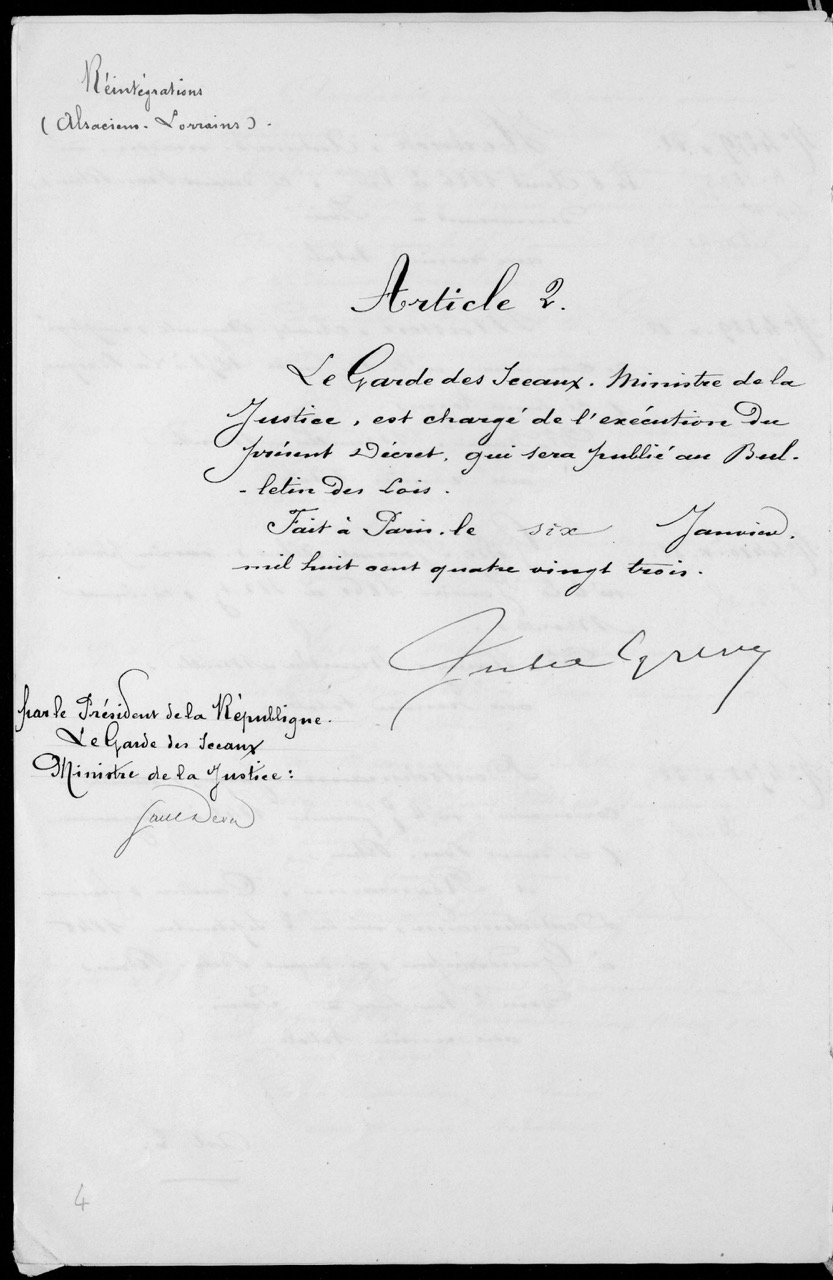 Réintégrations
(Alsaciens-Lorrains).
Article 2.
Le Garde des Sceaux. Ministre de la
Justice, est chargé de l'exécution du
présent Décret, qui sera publié au Bul-
-letin des Lois.
Fait à Paris, le six Janvier.
mil huit cent quatre vingt trois.
Jules Grévy
par le Président de la République.
Le Garde des Sceaux
Ministre de la Justice:
Paul Devès
4